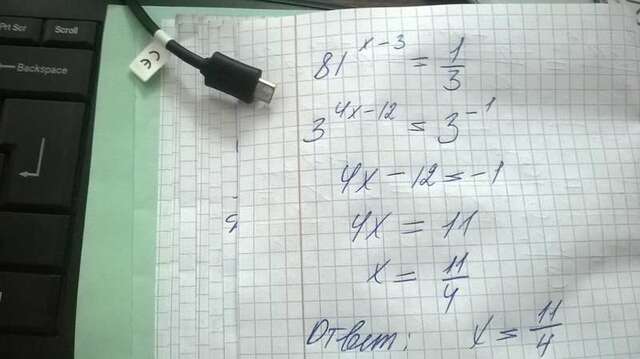 Prt Scr
Scroll
Backspace
CE
81^{x-3} = \frac{1}{3}
3^{4x-12} = 3^{-1}
4x - 12 = -1
4x = 11
x = \frac{11}{4}
Ответ: x = \frac{11}{4}